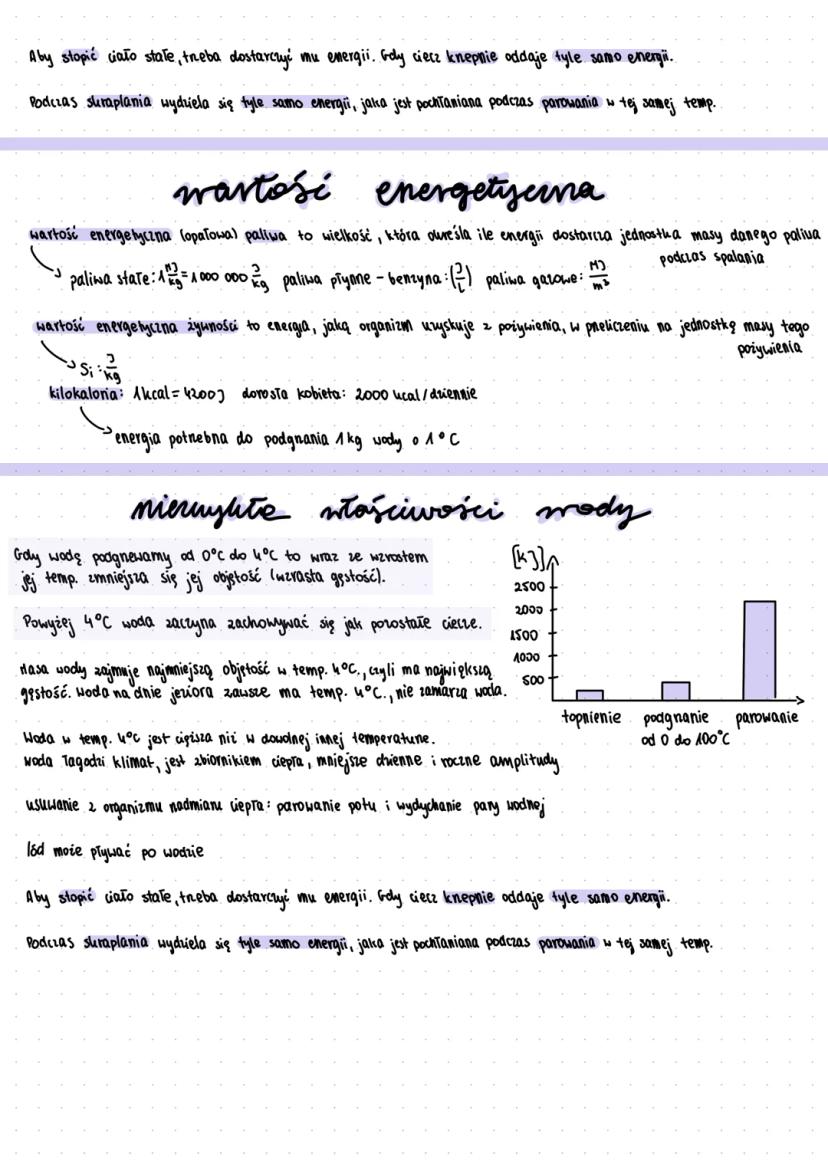 Aby stopić ciało stałe, trzeba dostarczyć mu energii. Gdy ciecz krzepnie oddaje tyle samo energii.
Podczas skraplania wydziela się tyle samo energii, jaka jest pochłaniana podczas parowania w tej samej temp.
wartość energetyczna
wartość energetyczna (opałowa) paliwa to wielkość, która określa ile energii dostarcza jednostka masy danego paliwa
podczas spalania
paliwa stałe: 1 MJ/kg = 1 000 000 J/kg paliwa płynne - benzyna: (J/L) paliwa gazowe: MJ/m³
wartość energetyczna żywności to energia, jaką organizm uzyskuje z pożywienia, w przeliczeniu na jednostkę masy tego
pożywienia
Si: J/kg
kilokaloria: 1kcal = 4200J dorosła kobieta: 2000 kcal/dziennie
energia potrzebna do podgrzania 1kg wody o 1°C
niezwykłe właściwości wody
Gdy wodę podgrzewamy od 0°C do 4°C to wraz ze wzrostem
jej temp. zmniejsza się jej objętość (wzrasta gęstość).
Powyżej 4°C woda zaczyna zachowywać się jak pozostałe ciecze.
Masa wody zajmuje najmniejszą objętość w temp. 4°C., czyli ma największą
gęstość. Woda na dnie jeziora zawsze ma temp. 4°C., nie zamarza woda.
[kJ]
2500
2000
1500
1000
500
topnienie podgrzanie parowanie
od 0 do 100°C
Woda w temp. 4°C jest cięższa niż w dowolnej innej temperaturze.
woda łagodzi klimat, jest zbiornikiem ciepła, mniejsze dzienne i roczne amplitudy
usuwanie z organizmu nadmiaru ciepła: parowanie potu i wydychanie pary wodnej
lód może pływać po wodzie
Aby stopić ciało stałe, trzeba dostarczyć mu energii. Gdy ciecz krzepnie oddaje tyle samo energii.
Podczas skraplania wydziela się tyle samo energii, jaka jest pochłaniana podczas parowania w tej samej temp.